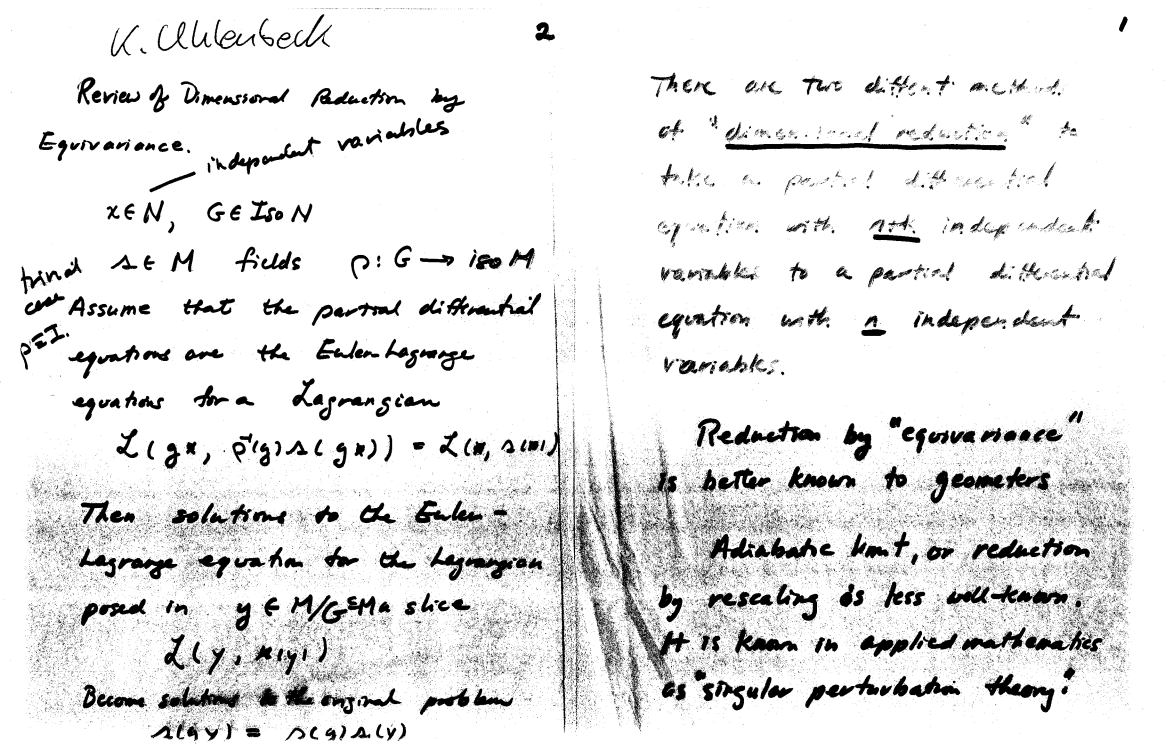 K. Uhlenbeck
2
Review of Dimensional Reduction by
Equivariance.
independent variables
x ∈ N, G ∈ Iso N
trivial
case
ρ ≡ I.
s ∈ M fields ρ: G → iso M
Assume that the partial differential
equations are the Euler-Lagrange
equations for a Lagrangian
L(gx, ρ⁻¹(g)s(gx)) = L(x, s(x))
Then solutions to the Euler-
Lagrange equation for the Lagrangian
posed in y ∈ M/G ⊆ M a slice
L(y, x(y))
Become solutions to the original problem
s(gy) = s(g)s(y)
1
There are two diffent methods
of "dimensional reduction" to
take a partial differential
equation with n+k independent
variables to a partial differential
equation with n independent
variables.
Reduction by "equivariance"
is better known to geometers
Adiabatic limit, or reduction
by rescaling is less well-known.
It is known in applied mathematics
as "singular perturbation theory."